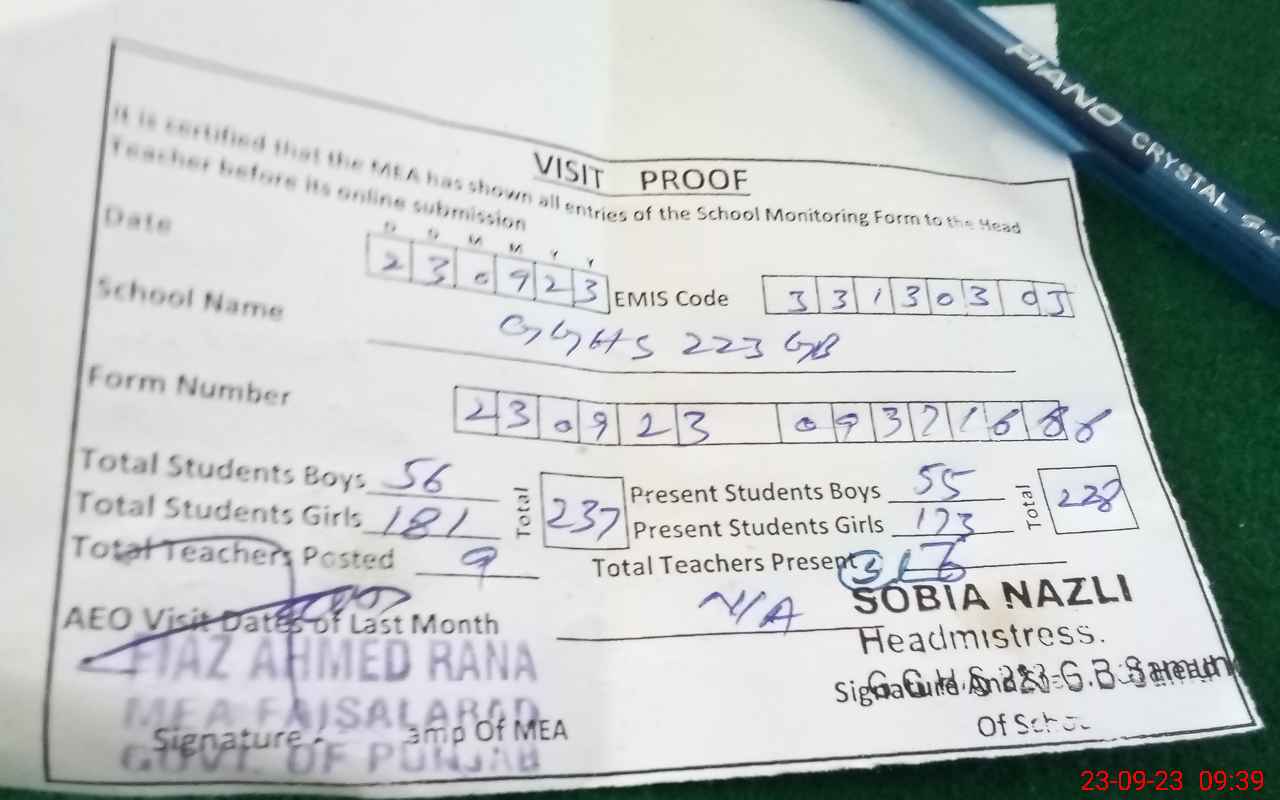 PIANO CRYSTAL
VISIT PROOF
It is certified that the MEA has shown all entries of the School Monitoring Form to the Head
Teacher before its online submission
D D M M Y Y
Date 2 3 0 9 2 3 EMIS Code 3 3 1 3 0 3 0 5
School Name GGHS 223 GB
Form Number 2 3 0 9 2 3 0 9 3 7 1 6
Total Students Boys 56 Total 237 Present Students Boys 55 Total 228
Total Students Girls 181 Present Students Girls 173
Total Teachers Posted 9 Total Teachers Present
AEO Visit Dates of Last Month N/A SOBIA NAZLI
Headmistress.
FIAZ AHMED RANA
MEA FAISALABAD
GOVT. OF PUNJAB
Signature
Of MEA
Signature
Of
23-09-23 09:39